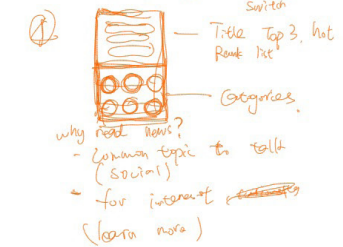 Switch
①
Title Top 3. hot
Rank list
Categories.
why read news?
- Common topic to talk
(social)
- for interest
(learn more)